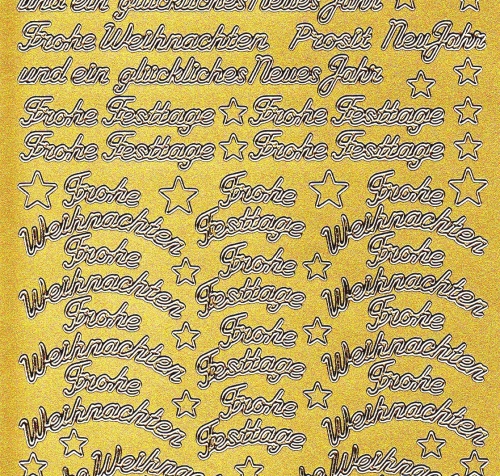 und ein glückliches Neues Jahr
Frohe Weihnachten Prosit NeuJahr
und ein glückliches Neues Jahr
Frohe Festtage Frohe Festtage
Frohe Festtage Frohe Festtage
Frohe Frohe Frohe
Weihnachten Festtage Weihnachten
Frohe Frohe Frohe
Weihnachten Festtage Weihnachten
Frohe Frohe Frohe
Weihnachten Festtage Weihnachten
Frohe Frohe Frohe
Weihnachten Festtage Weihnachten
Weihnachten Weihnachten